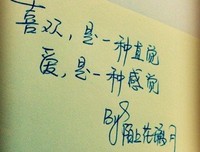 喜欢，是一种直觉
爱，是一种感觉
By
陌上先